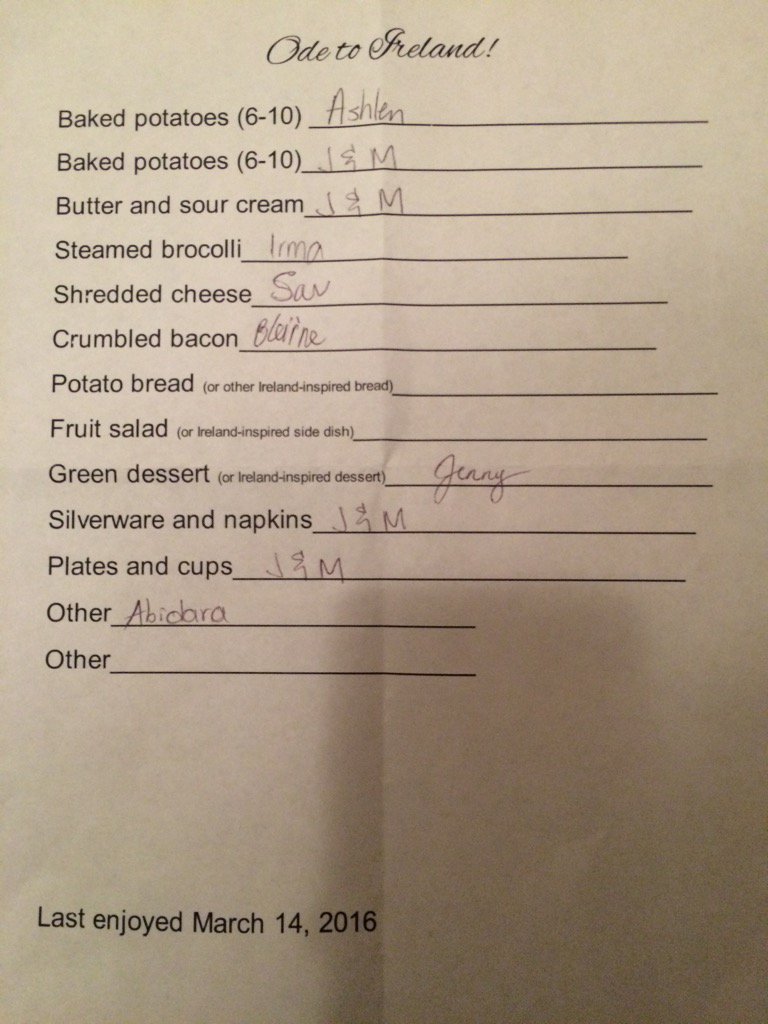 Ode to Ireland!
Baked potatoes (6-10) Ashlen
Baked potatoes (6-10) J & M
Butter and sour cream J & M
Steamed brocolli Irma
Shredded cheese Sav
Crumbled bacon
Potato bread (or other Ireland-inspired bread)
Fruit salad (or Ireland-inspired side dish)
Green dessert (or Ireland-inspired dessert) Jenny
Silverware and napkins J & M
Plates and cups J & M
Other Abidara
Other
Last enjoyed March 14, 2016